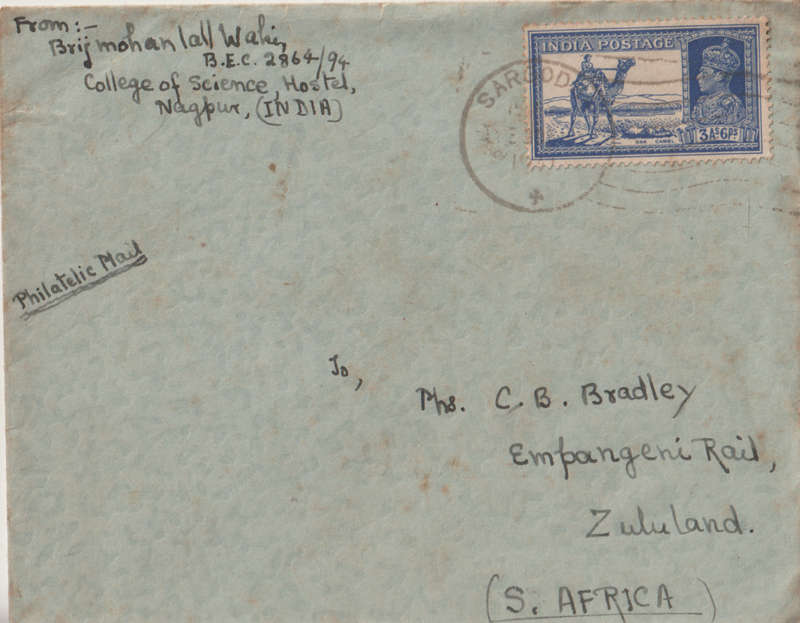 From:-
Brijmohan lall Wahi,
B.E.C. 2864/94
College of Science, Hostel,
Nagpur, (INDIA)
INDIA POSTAGE
3As6Ps
DAK CAMEL
Philatelic Mail
To,
Mrs. C. B. Bradley
Empangeni Rail,
Zululand.
(S. AFRICA)